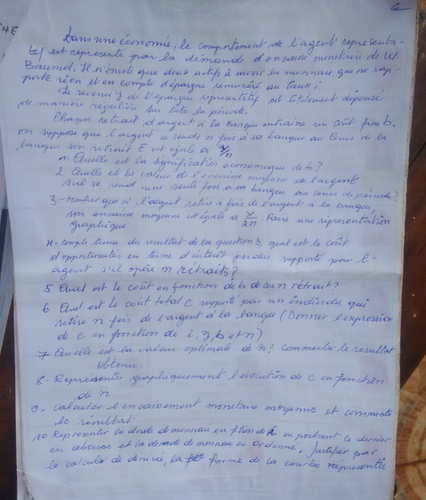 Dans une économie, le comportement de l'agent représenta-
tif est représenté par la demande d'encaisse monétaire de W.
Baumol. Il n'existe que deux actifs à savoir la monnaie qui ne rap-
porte rien et un compte d'épargne rémunéré au taux i
Le revenu Y de l'épargne représentatif est totalement dépensé
de manière régulière sur toute la période.
Chaque retrait d'argent à la banque entraine un coût fixe b.
on suppose que l'argent se rende n fois à sa banque au cours de la
banque son retrait E est égale à Y/n
1- Quelle est la signification économique de b?
2 Quelle est la valeur de l'encaisse moyenne de l'argent
s'il se rend une seule fois à sa banque au cours de période?
3- Montrer que si l'agent retire n fois de l'argent à la banque,
son encaisse moyenne est égale à Y/2n. Faire une représentation
graphique
4- compte tenu du resultat de la question 3, quel est le coût
d'opportunités en terme d'intérêt perdus supporté pour l'-
agent s'il opère n retraits?
5 Quel est le coût en fonction de b de ces n retrait?
6 Quel est le coût total C supporté par un individu qui
retire n fois de l'argent à la banque (Donner l'expression
de C en fonction de i, Y, b et n)
7- Quelle est la valeur optimale de n? commenter le resultat
obtenu
8- Représenter graphiquement l'évolution de C en fonction
de n
9- Calculer l'encaissement monétaire moyenne et commente
le résultat
10 Representer la demande de monnaie en fction de en portant le dernier
en abscisse et la demande de monnaie en ordonnée, Justifier par
le calculs de dérivée, la forme de la courbe représentée